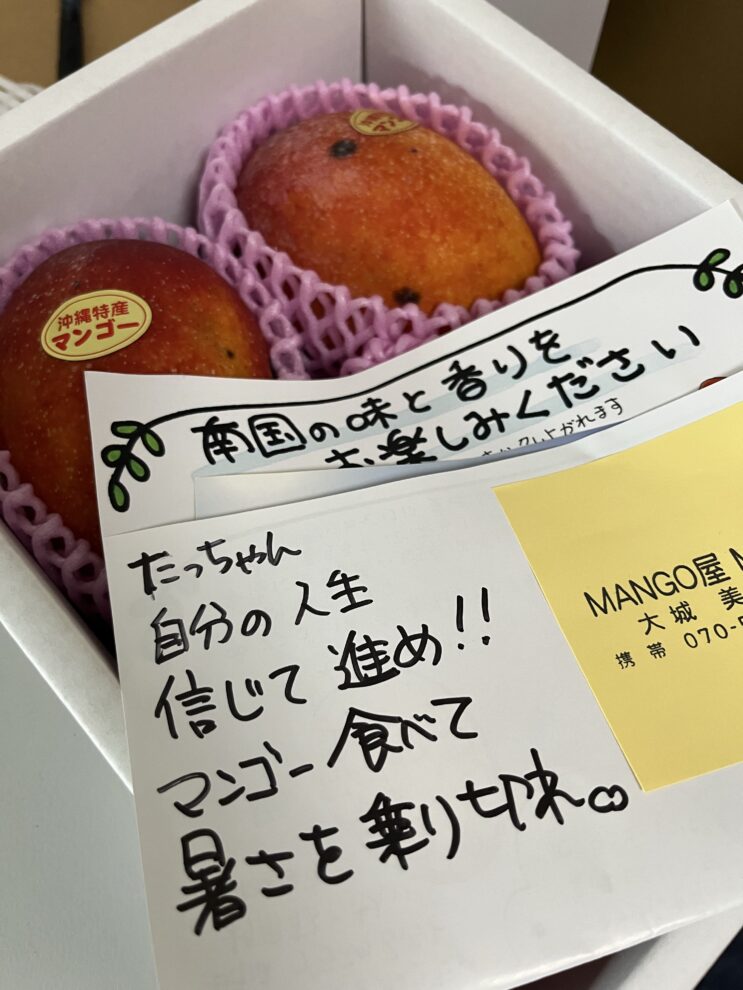 沖縄特産
マンゴー
南国の味と香りを
お楽しみください
たっちゃん
自分の人生
信じて進め!!
マンゴー食べて
暑さを乗り切れ。
MANGO屋
大城 美
携帯 070-